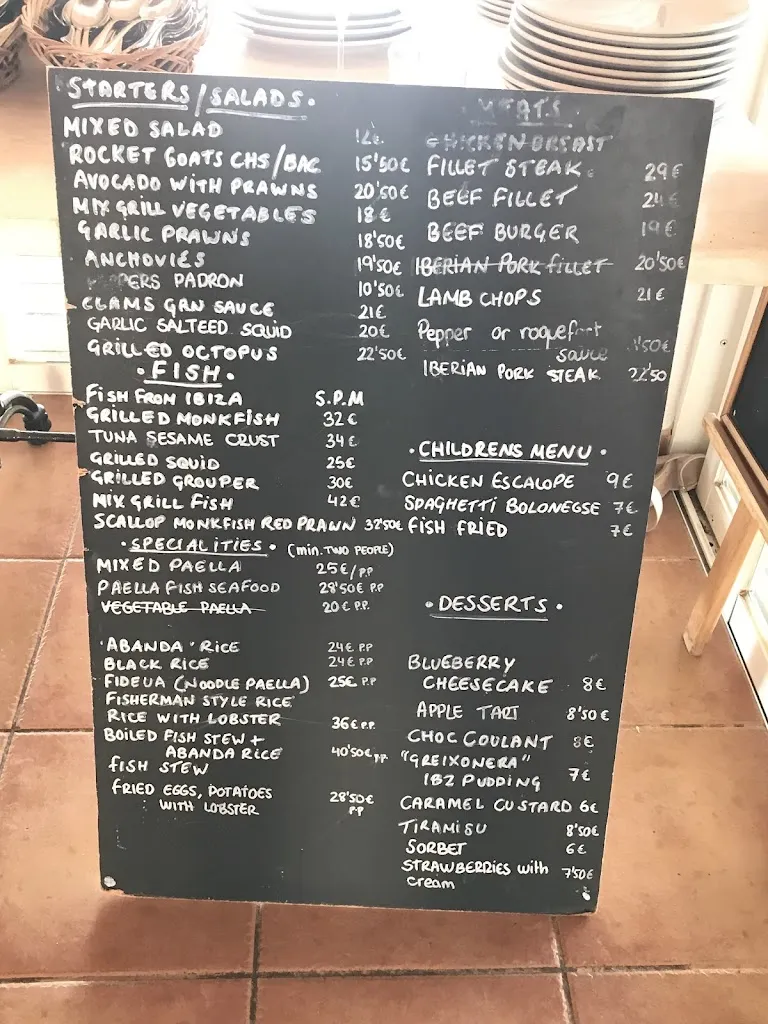 STARTERS/SALADS.
MIXED SALAD 12€
ROCKET GOATS CHS/BAC 15'50€
AVOCADO WITH PRAWNS 20'50€
MIX GRILL VEGETABLES 18€
GARLIC PRAWNS 18'50€
ANCHOVIES 19'50€
PADRON 10'50€
CLAMS GRN SAUCE 21€
GARLIC SALTEED SQUID 20€
GRILLED OCTOPUS 22'50€
• FISH •
FISH FROM IBIZA S.P.M
GRILLED MONKFISH 32€
TUNA SESAME CRUST 34€
GRILLED SQUID 25€
GRILLED GROUPER 30€
MIX GRILL FISH 42€
SCALLOP MONKFISH RED PRAWN 32'50€
• SPECIALITIES • (min. TWO PEOPLE)
MIXED PAELLA 25€/PP
PAELLA FISH SEAFOOD 28'50€ PP
VEGETABLE PAELLA 20€ P.P.
'ABANDA' RICE 24€ P.P
BLACK RICE 24€ P.P
FIDEUA (NOODLE PAELLA) 25€ P.P
FISHERMAN STYLE RICE
RICE WITH LOBSTER 36€ P.P.
BOILED FISH STEW +
ABANDA RICE 40'50€ PP
FISH STEW
FRIED EGGS, POTATOES 28'50€
WITH LOBSTER PP
MEATS.
CHICKEN BREAST
FILLET STEAK. 29€
BEEF FILLET 24€
BEEF BURGER 19€
IBERIAN PORK FILLET 20'50€
LAMB CHOPS 21€
Pepper or roquefort
sauce
IBERIAN PORK STEAK 22'50
• CHILDRENS MENU •
CHICKEN ESCALOPE 9€
SPAGHETTI BOLONEGSE 7€
FISH FRIED 7€
• DESSERTS •
BLUEBERRY
CHEESECAKE 8€
APPLE TART 8'50€
CHOC COULANT 8€
"GREIXONERA"
IBZ PUDDING 7€
CARAMEL CUSTARD 6€
TIRAMISU 8'50€
SORBET 6€
STRAWBERRIES with 7'50€
cream